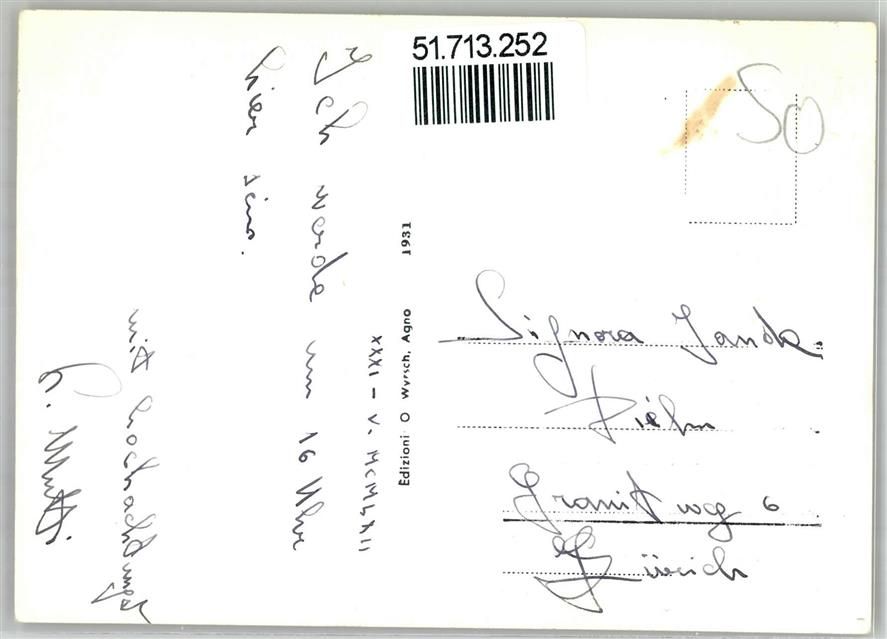 51.713.252
50
XXXI - V. MCMLXII
Ich werde um 16 Uhr
hier sein.
mit Hochachtung
Edizioni O Wyrsch, Agno 1931
Signora Janda
Diehm
Granitweg 6
Zürich